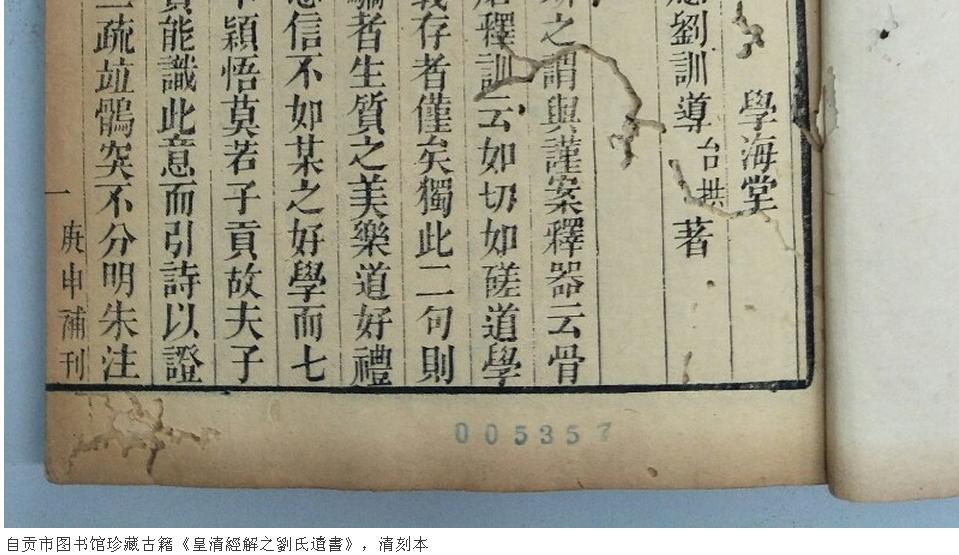 學海堂
劉訓導台拱著
之謂與謹案釋器云骨
釋訓云如切如磋道學
存者僅矣獨此二句則
者生質之美樂道好禮
信不如某之好學而七
穎悟莫若子貢故夫子
能識此意而引詩以證
疏竝鶻突不分明朱注
一
庚申補刊
005357
自贡市图书馆珍藏古籍《皇清經解之劉氏遺書》，清刻本